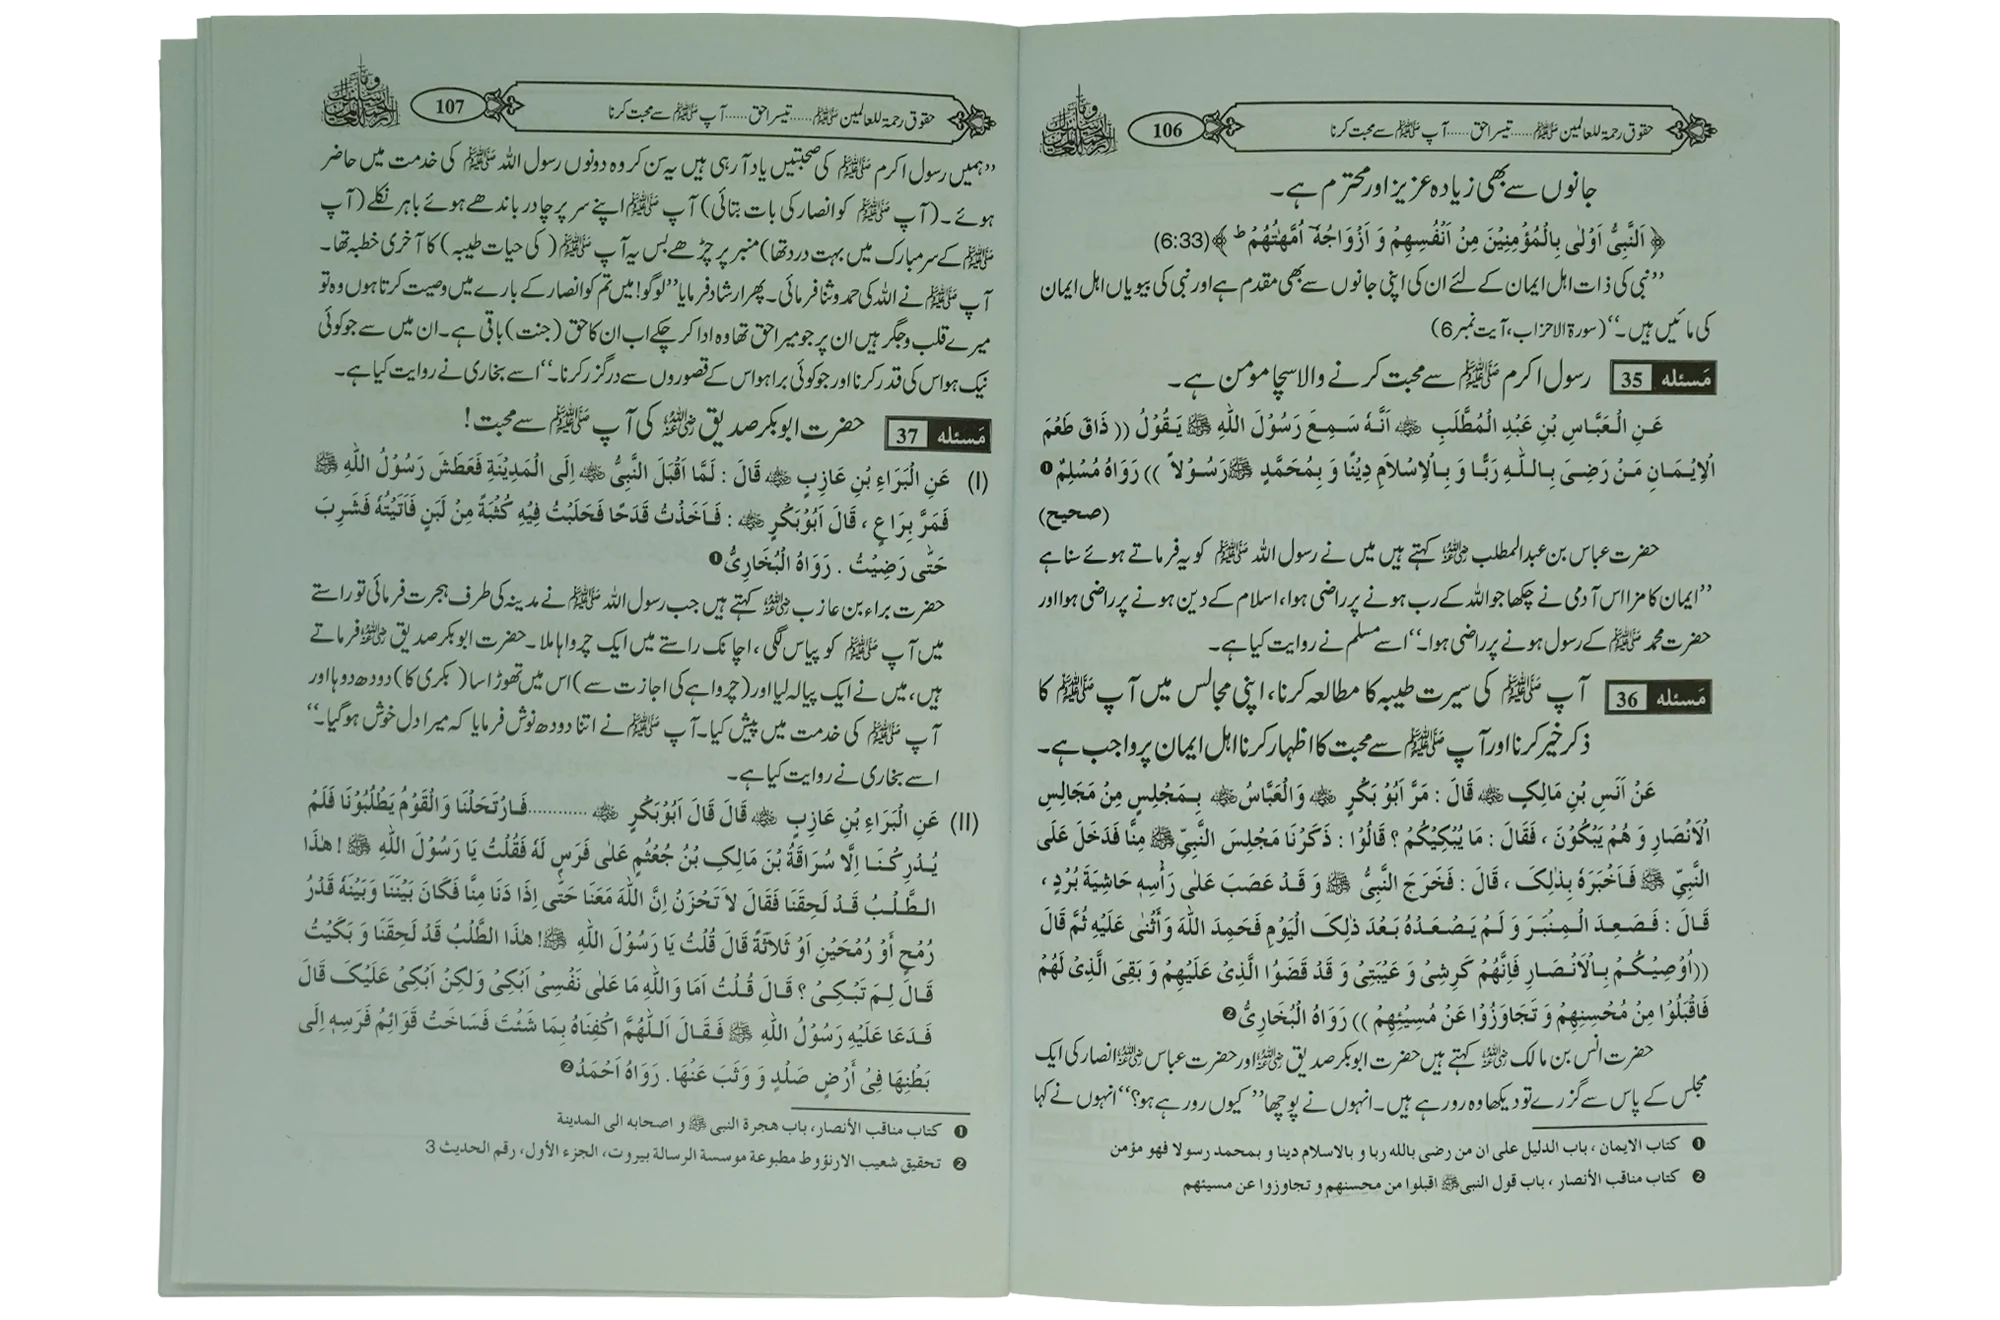 حقوق رحمة للعالمین ﷺ ...... تیسرا حق ...... آپ ﷺ سے محبت کرنا
106
جانوں سے بھی زیادہ عزیز اور محترم ہے۔
﴿ اَلنَّبِیُّ اَوْلٰی بِالْمُؤْمِنِیْنَ مِنْ اَنْفُسِهِمْ وَ اَزْوَاجُهٗٓ اُمَّهٰتُهُمْ ط ﴾(6:33)
’’نبی کی ذات اہل ایمان کے لئے ان کی اپنی جانوں سے بھی مقدم ہے اور نبی کی بیویاں اہل ایمان
کی مائیں ہیں۔‘‘ (سورۃ الاحزاب، آیت نمبر 6)
مَسئله 35 رسول اکرم ﷺ سے محبت کرنے والا سچا مومن ہے۔
عَنِ الْعَبَّاسِ بْنِ عَبْدِ الْمُطَّلِبِ ؓ اَنَّهٗ سَمِعَ رَسُوْلَ اللّٰهِ ﷺ یَقُوْلُ (( ذَاقَ طَعْمَ
الْاِیْمَانِ مَنْ رَضِیَ بِاللّٰهِ رَبًّا وَ بِالْاِسْلاَمِ دِیْنًا وَ بِمُحَمَّدٍ ﷺ رَسُوْلاً )) رَوَاهُ مُسْلِمٌ ❶
(صحیح)
حضرت عباس بن عبدالمطلب ؓ کہتے ہیں میں نے رسول اللہ ﷺ کو یہ فرماتے ہوئے سنا ہے
’’ایمان کا مزا اس آدمی نے چکھا جو اللہ کے رب ہونے پر راضی ہوا، اسلام کے دین ہونے پر راضی ہوا اور
حضرت محمد ﷺ کے رسول ہونے پر راضی ہوا۔‘‘ اسے مسلم نے روایت کیا ہے۔
مَسئله 36 آپ ﷺ کی سیرت طیبہ کا مطالعہ کرنا، اپنی مجالس میں آپ ﷺ کا
ذکر خیر کرنا اور آپ ﷺ سے محبت کا اظہار کرنا اہل ایمان پر واجب ہے۔
عَنْ اَنَسِ بْنِ مَالِکٍ ؓ قَالَ : مَرَّ اَبُوْ بَکْرٍ ؓ وَالْعَبَّاسُ ؓ بِمَجْلِسٍ مِنْ مَجَالِسِ
الْاَنْصَارِ وَ هُمْ یَبْکُوْنَ ، فَقَالَ : مَا یُبْکِیْکُمْ ؟ قَالُوْا : ذَکَرْنَا مَجْلِسَ النَّبِیِّ ﷺ مِنَّا فَدَخَلَ عَلَی
النَّبِیِّ ﷺ فَاَخْبَرَهٗ بِذٰلِکَ ، قَالَ : فَخَرَجَ النَّبِیُّ ﷺ وَ قَدْ عَصَبَ عَلٰی رَأْسِهٖ حَاشِیَةَ بُرْدٍ ،
قَالَ : فَصَعِدَ الْمِنْبَرَ وَ لَمْ یَصْعَدْهُ بَعْدَ ذٰلِکَ الْیَوْمِ فَحَمِدَ اللّٰهَ وَأَثْنٰی عَلَیْهِ ثُمَّ قَالَ
((اُوْصِیْکُمْ بِالْاَنْصَارِ فَاِنَّهُمْ کَرِشِیْ وَ عَیْبَتِیْ وَ قَدْ قَضَوُا الَّذِیْ عَلَیْهِمْ وَ بَقِیَ الَّذِیْ لَهُمْ
فَاقْبَلُوْا مِنْ مُحْسِنِهِمْ وَ تَجَاوَزُوْا عَنْ مُسِیْئِهِمْ )) رَوَاهُ الْبُخَارِیُّ ❷
حضرت انس بن مالک ؓ کہتے ہیں حضرت ابوبکر صدیق ؓ اور حضرت عباس ؓ انصار کی ایک
مجلس کے پاس سے گزرے تو دیکھا وہ رو رہے ہیں۔ انہوں نے پوچھا ’’کیوں رو رہے ہو؟‘‘ انہوں نے کہا
❶ کتاب الایمان ، باب الدلیل علی ان من رضی بالله ربا و بالاسلام دینا و بمحمد رسولا فهو مؤمن
❷ کتاب مناقب الأنصار ، باب قول النبی ﷺ اقبلوا من محسنهم و تجاوزوا عن مسیئهم
حقوق رحمة للعالمین ﷺ ...... تیسرا حق ...... آپ ﷺ سے محبت کرنا
107
’’ہمیں رسول اکرم ﷺ کی صحبتیں یاد آ رہی ہیں یہ سن کر وہ دونوں رسول اللہ ﷺ کی خدمت میں حاضر
ہوئے۔ (آپ ﷺ کو انصار کی بات بتائی) آپ ﷺ اپنے سر پر چادر باندھے ہوئے باہر نکلے (آپ
ﷺ کے سر مبارک میں بہت درد تھا) منبر پر چڑھے بس یہ آپ ﷺ ( کی حیات طیبہ ) کا آخری خطبہ تھا۔
آپ ﷺ نے اللہ کی حمد و ثنا فرمائی۔ پھر ارشاد فرمایا ’’لوگو! میں تم کو انصار کے بارے میں وصیت کرتا ہوں وہ تو
میرے قلب و جگر ہیں ان پر جو میرا حق تھا وہ ادا کر چکے اب ان کا حق (جنت) باقی ہے۔ ان میں سے جو کوئی
نیک ہو اس کی قدر کرنا اور جو کوئی برا ہو اس کے قصوروں سے درگزر کرنا۔‘‘ اسے بخاری نے روایت کیا ہے۔
مَسئله 37 حضرت ابوبکر صدیق ؓ کی آپ ﷺ سے محبت!
(I) عَنِ الْبَرَاءِ بْنِ عَازِبٍ ؓ قَالَ : لَمَّا اَقْبَلَ النَّبِیُّ ﷺ اِلَی الْمَدِیْنَةِ فَعَطَشَ رَسُوْلُ اللّٰهِ ﷺ
فَمَرَّ بِرَاعٍ ، قَالَ اَبُوْبَکْرٍ ؓ : فَاَخَذْتُ قَدَحًا فَحَلَبْتُ فِیْهِ کُثْبَةً مِنْ لَبَنٍ فَاَتَیْتُهٗ فَشَرِبَ
حَتّٰی رَضِیْتُ . رَوَاهُ الْبُخَارِیُّ ❶
حضرت براء بن عازب ؓ کہتے ہیں جب رسول اللہ ﷺ نے مدینہ کی طرف ہجرت فرمائی تو راستے
میں آپ ﷺ کو پیاس لگی، اچانک راستے میں ایک چرواہا ملا۔ حضرت ابوبکر صدیق ؓ فرماتے
ہیں، میں نے ایک پیالہ لیا اور (چرواہے کی اجازت سے) اس میں تھوڑا سا ( بکری کا) دودھ دوہا اور
آپ ﷺ کی خدمت میں پیش کیا۔ آپ ﷺ نے اتنا دودھ نوش فرمایا کہ میرا دل خوش ہوگیا۔‘‘
اسے بخاری نے روایت کیا ہے۔
(II) عَنِ الْبَرَاءِ بْنِ عَازِبٍ ؓ قَالَ قَالَ اَبُوْبَکْرٍ ؓ ............فَارْتَحَلْنَا وَالْقَوْمُ یَطْلُبُوْنَا فَلَمْ
یُدْرِکْنَا اِلَّا سُرَاقَةُ بْنَ مَالِکِ بْنُ جُعْثُمٍ عَلٰی فَرَسٍ لَهٗ فَقُلْتُ یَا رَسُوْلَ اللّٰهِ ﷺ ! هٰذَا
الطَّلْبُ قَدْ لَحِقَنَا فَقَالَ لاَ تَحْزَنْ اِنَّ اللّٰهَ مَعَنَا حَتّٰی اِذَا دَنَا مِنَّا فَکَانَ بَیْنَنَا وَبَیْنَهٗ قَدْرُ
رُمْحٍ أَوْ رُمْحَیْنِ اَوْ ثَلاَثَةً قَالَ قُلْتُ یَا رَسُوْلَ اللّٰهِ ﷺ! هٰذَا الطَّلْبُ قَدْ لَحِقَنَا وَ بَکَیْتُ
قَالَ لِمَ تَبْکِیْ ؟ قَالَ قُلْتُ اَمَا وَاللّٰهِ مَا عَلٰی نَفْسِیْ اَبْکِیْ وَلٰکِنْ اَبْکِیْ عَلَیْکَ قَالَ
فَدَعَا عَلَیْهِ رَسُوْلُ اللّٰهِ ﷺ فَقَالَ اَللّٰهُمَّ اکْفِنَاهُ بِمَا شَئْتَ فَسَاخَتْ قَوَائِمُ فَرَسِهٖ اِلٰی
بَطْنِهَا فِیْ أَرْضٍ صَلْدٍ وَ وَثَبَ عَنْهَا. رَوَاهُ اَحْمَدُ ❷
❶ کتاب مناقب الأنصار، باب هجرة النبی ﷺ و اصحابه الی المدینة
❷ تحقیق شعیب الارنؤوط مطبوعة موسسة الرسالة بیروت، الجزء الأول، رقم الحدیث 3